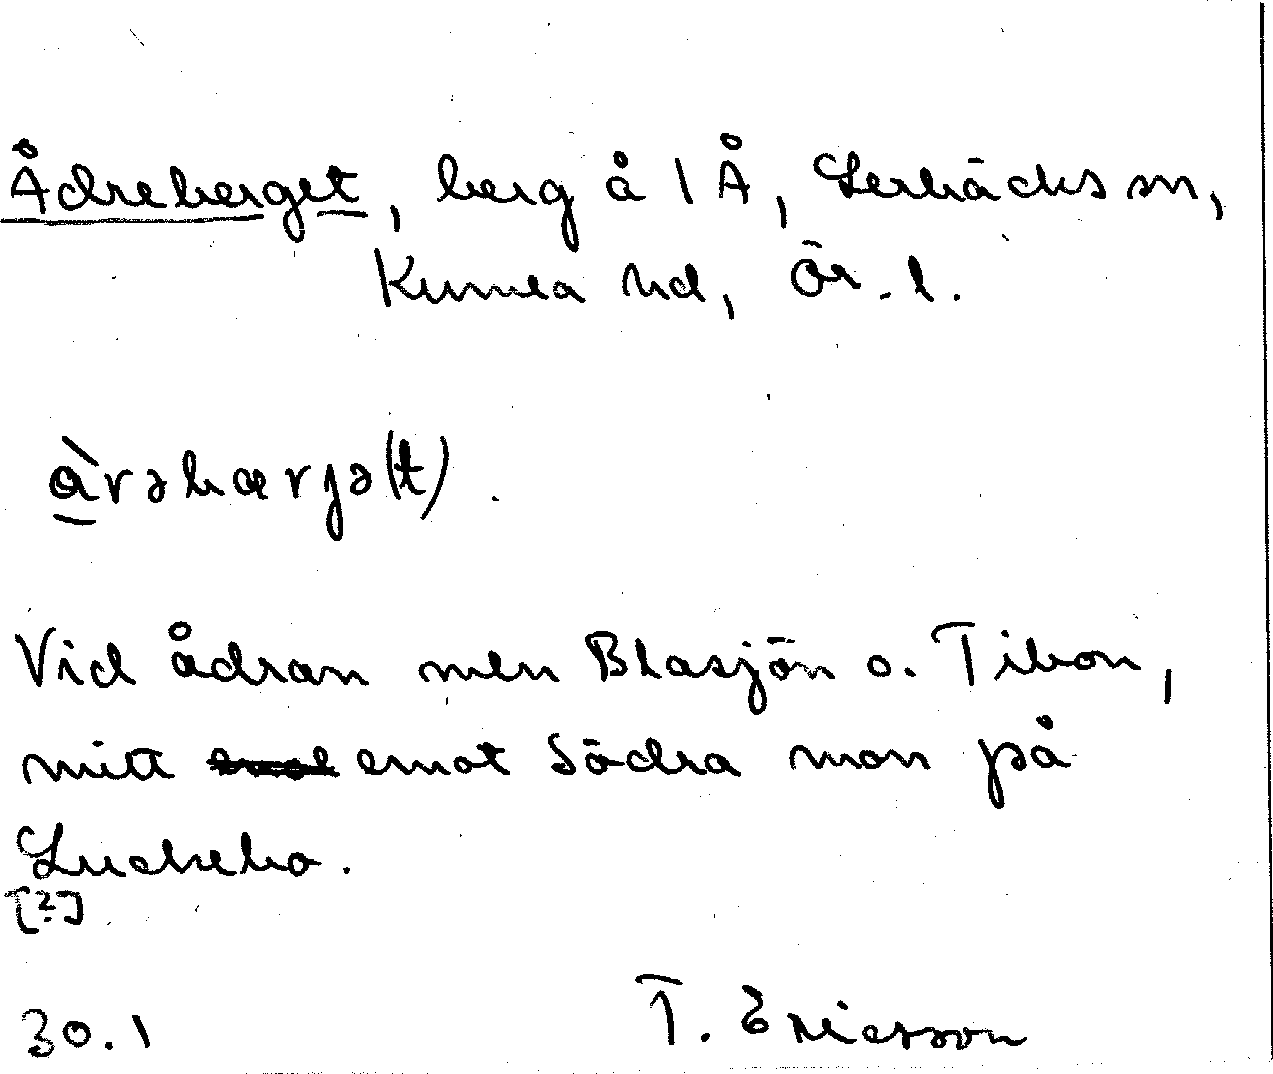 Ådreberget, berg å 1 Å, Lerbäcks sn,
Kumla hd, Ör. l.
å̀rəbærjə(t).
Vid ådran mln Blasjön o. Tibon,
mitt emot Södra mon på
Luckebo.
[?]
30.1 T. Ericsson